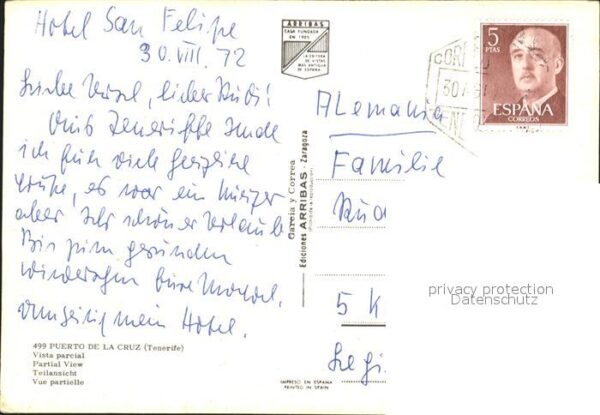 Hotel San Felipe
30. VIII. 72
Liebe Ursel, lieber Rudi!
Aus Teneriffa sende
ich Euch viele herzliche
Grüße, es war ein kurzer
aber sehr schöner Urlaub
Bis zum gesunden
Wiedersehen Eure
umseitig mein Hotel.
499 PUERTO DE LA CRUZ (Tenerife)
Vista parcial
Partial View
Teilansicht
Vue partielle
ARRIBAS
CASA FUNDADA
EN 1905
LA EDITORA
DE VISTAS
MAS ANTIGUA
DE ESPAÑA
Garcia y Correa
Ediciones ARRIBAS - Zaragoza
IMPRESO EN ESPAÑA
PRINTED IN SPAIN
5
PTAS
ESPAÑA
CORREOS
CORREO
30
ALemania
Familie
Rud
5 K
privacy protection
Datenschutz